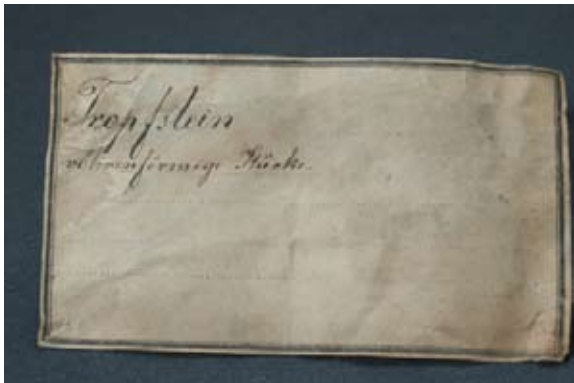 Tropfstein
röhrenförmige Stücke.